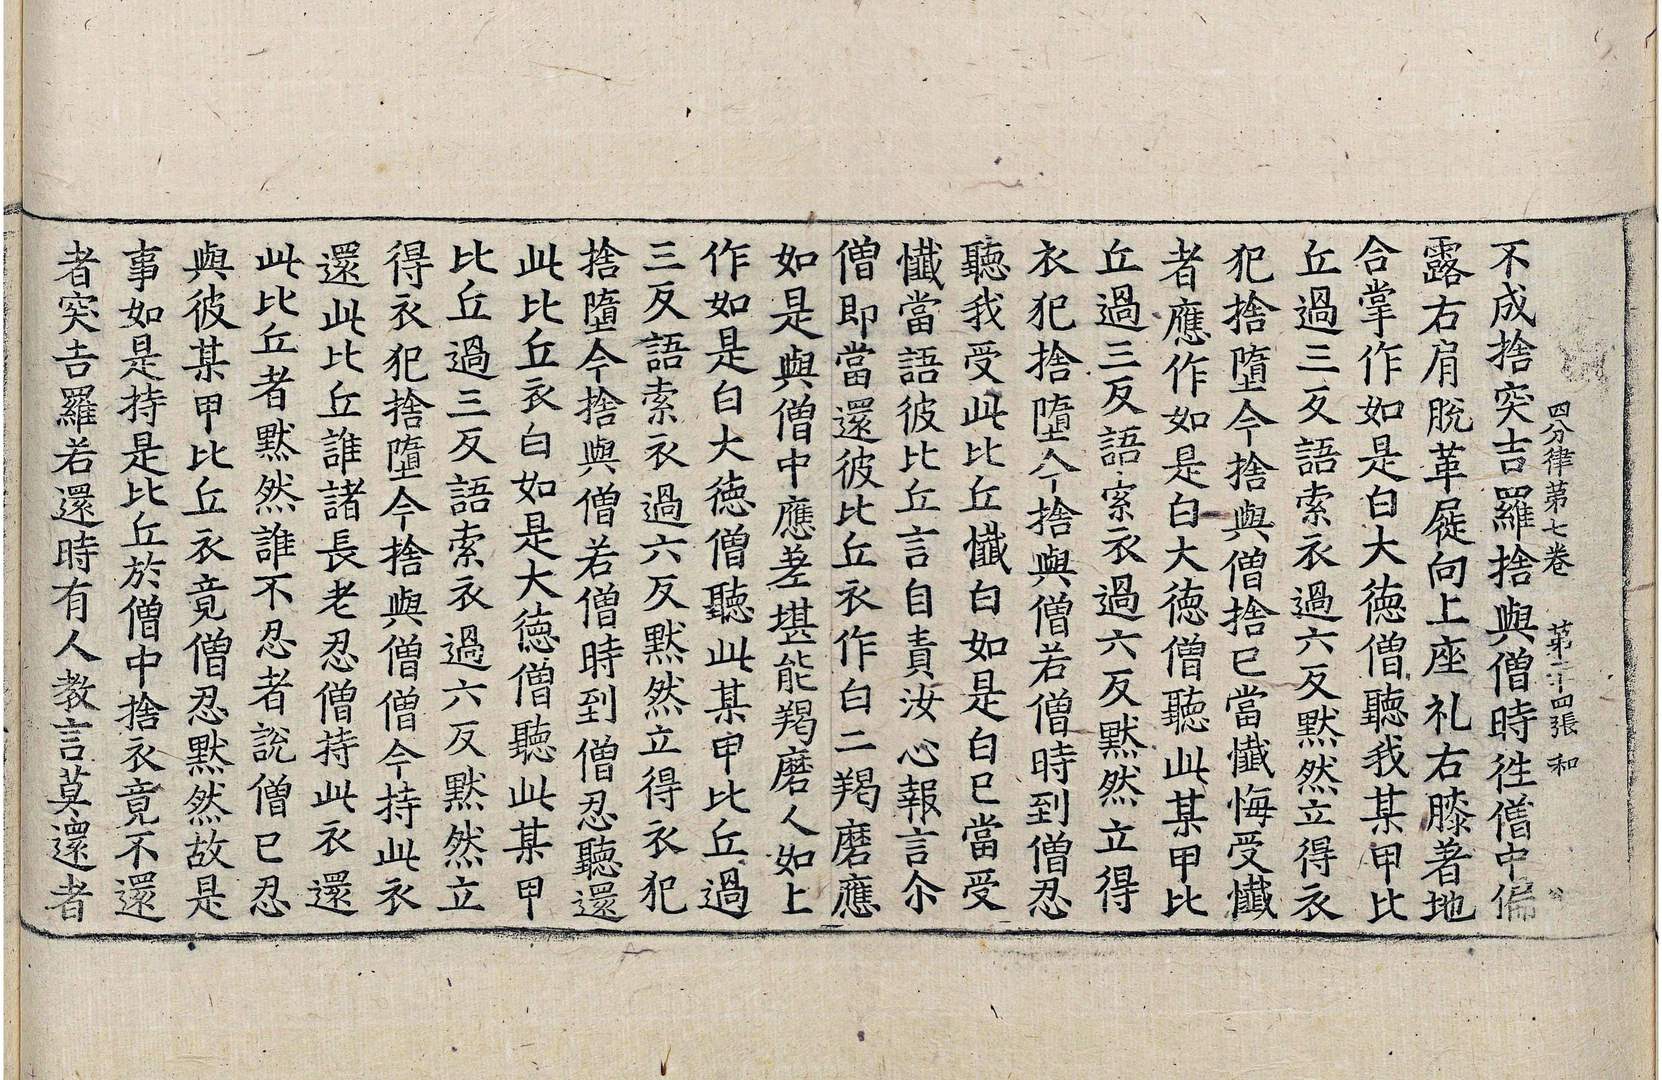 四分律第七卷 第二十四張 和
不成捨突吉羅捨與僧時徃僧中偏
露右肩脫革屣向上座礼右膝著地
合掌作如是白大徳僧聽我某甲比
丘過三反語索衣過六反默然立得衣
犯捨墮今捨與僧捨已當懺悔受懺
者應作如是白大徳僧聽此某甲比
丘過三反語索衣過六反默然立得
衣犯捨墮今捨與僧若僧時到僧忍
聽我受此比丘懺白如是白已當受
懺當語彼比丘言自責汝心報言尒
僧即當還彼比丘衣作白二羯磨應
如是與僧中應差堪能羯磨人如上
作如是白大徳僧聽此某甲比丘過
三反語索衣過六反默然立得衣犯
捨墮今捨與僧若僧時到僧忍聽還
此比丘衣白如是大徳僧聽此某甲
比丘過三反語索衣過六反默然立
得衣犯捨墮今捨與僧僧今持此衣
還此比丘誰諸長老忍僧持此衣還
此比丘者默然誰不忍者說僧已忍
與彼某甲比丘衣竟僧忍默然故是
事如是持是比丘於僧中捨衣竟不還
者突吉羅若還時有人教言莫還者